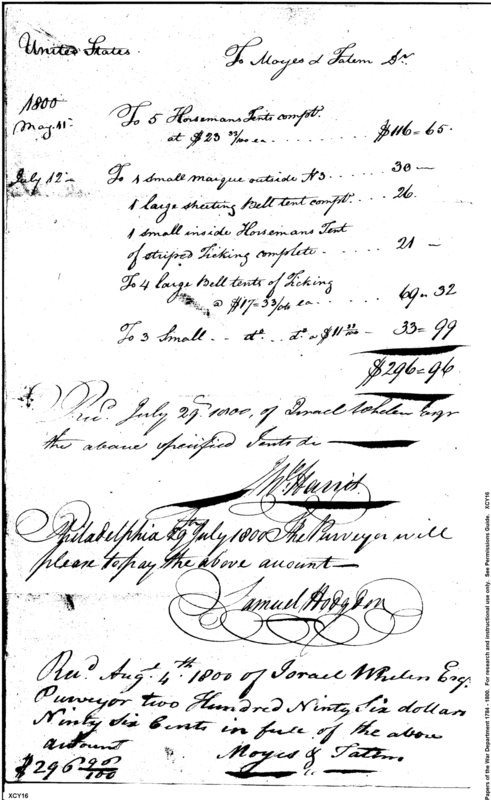 United States
To Moyes & Tatem Dr.
1800
May 11
To 5 Horsemans Tents compt.
at $23 33/100 ea $116=65.
July 12
To 1 small marque outside N3 30 —
1 large sheeting Bell tent compt. 26.
1 small inside Horsemans Tent
of striped Ticking complete 21 —
To 4 large Bell tents of Ticking
a $17=33/100 ea 69=32
To 3 Small do. do. a $11 33/100 33=99
$296=96
Recd. July 29th. 1800, of Israel Whelen Esqr
the above specified Tents &c
Harris
Philadelphia 29th July 1800 The Purveyor will
please to pay the above amount —
Samuel Hodgdon
Recd. Augt. 4th. 1800 of Israel Whelen Esq.
Purveyor two Hundred Ninty Six dollars
Ninty Six Cents in full of the above
amount Moyes & Tatem
$296 96/100
XCY16
Papers of the War Department 1784 - 1800. For research and instructional use only. See Permissions Guide. XCY16